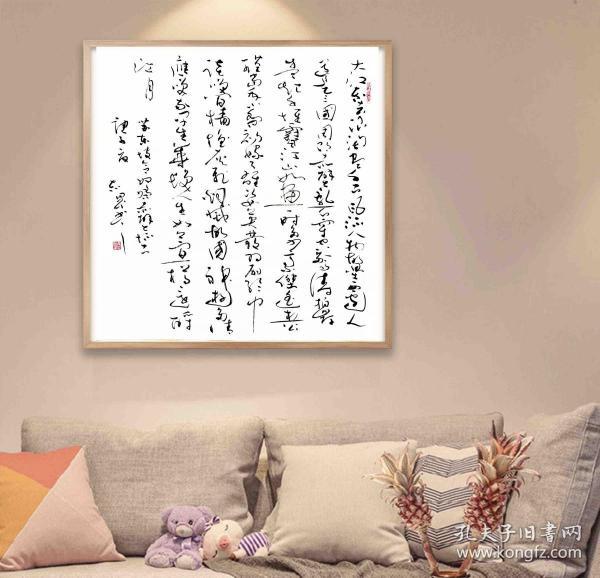 大江东去浪淘尽千古风流人物故壘西边人
道是三國周郎赤壁乱石穿空惊涛拍岸
卷起千堆雪江山如画一时多少豪傑遥想公
瑾当年小乔初嫁了雄姿英發羽扇纶巾
谈笑间樯橹灰飞烟滅故國神遊多情
應笑我早生华发人生如夢一樽还酹
江月
苏东坡念奴娇赤壁怀古
孔夫子旧书网
www.kongfz.com